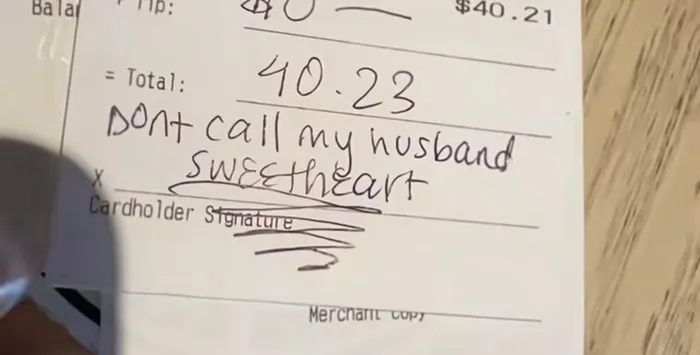 Tip: $40.21
= Total: 40.23
Dont call my husband
SWEEtheart
X
Cardholder Signature
Merchant Copy